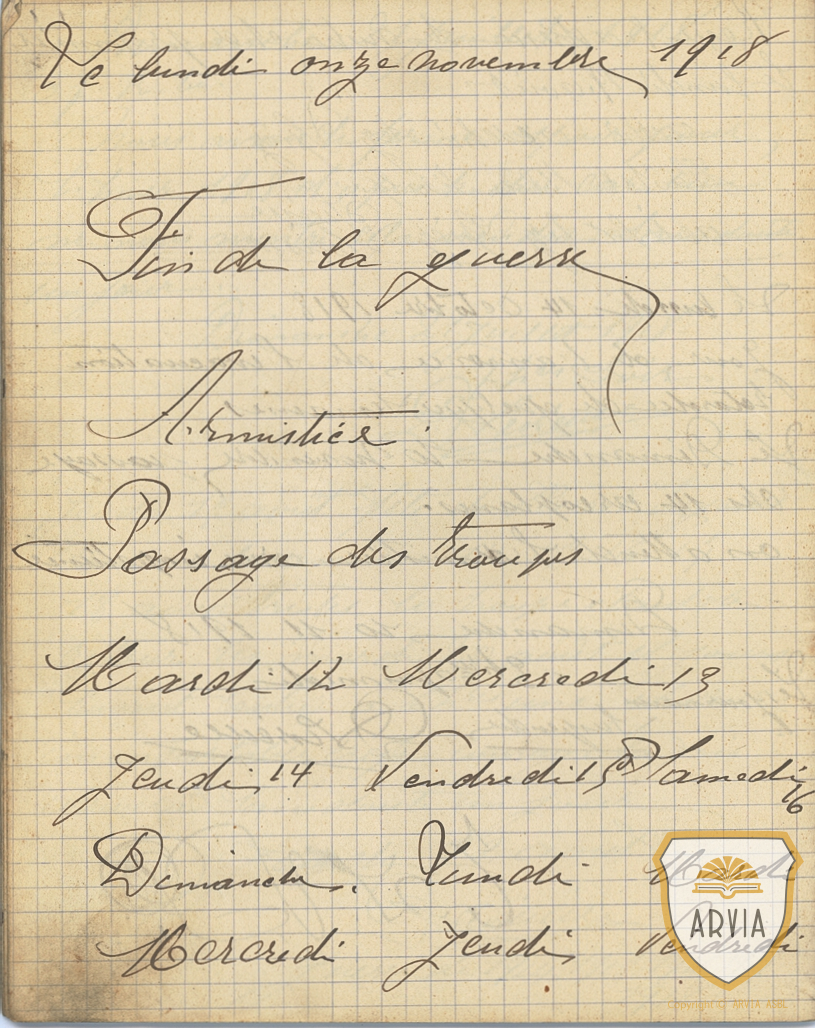 Le lundi onze novembre 1918
Fin de la guerre
Armistice.
Passage des troupes
Mardi 12 Mercredi 13
Jeudi 14 Vendredi 15 Samedi
16
Dimanche. Lundi Mardi
Mercredi Jeudi Vendredi
ARVIA
Copyright © ARVIA ASBL